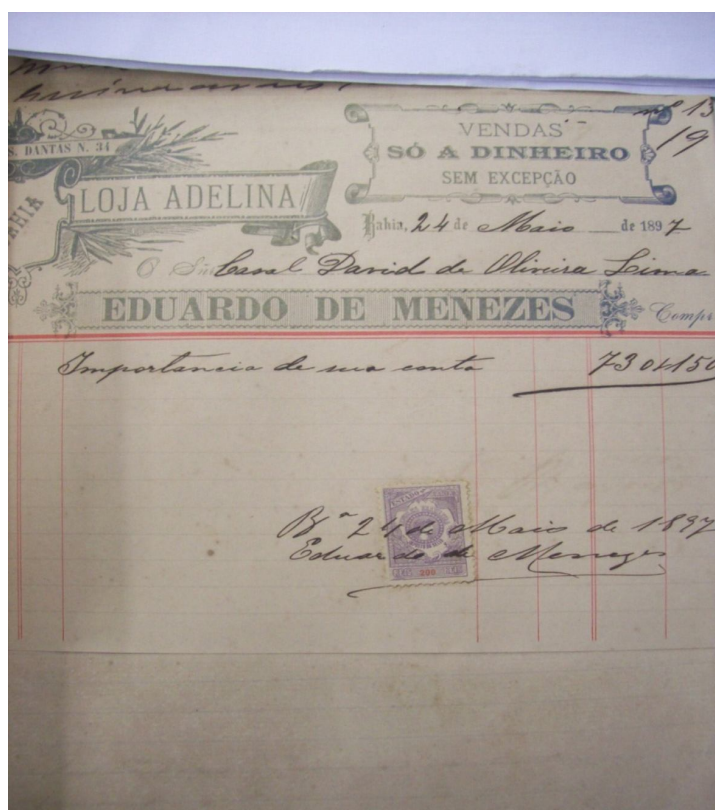 nº 13
19
S. DANTAS N. 34
VENDAS
SÓ A DINHEIRO
SEM EXCEPÇÃO
LOJA ADELINA
BAHIA
Bahia, 24 de Maio de 1897
O Snr. Casal David de Oliveira Lima
EDUARDO DE MENEZES Compr
Importancia de sua conta 730$150
Bª 24 de Maio de 1897
Eduardo de Menezes
200